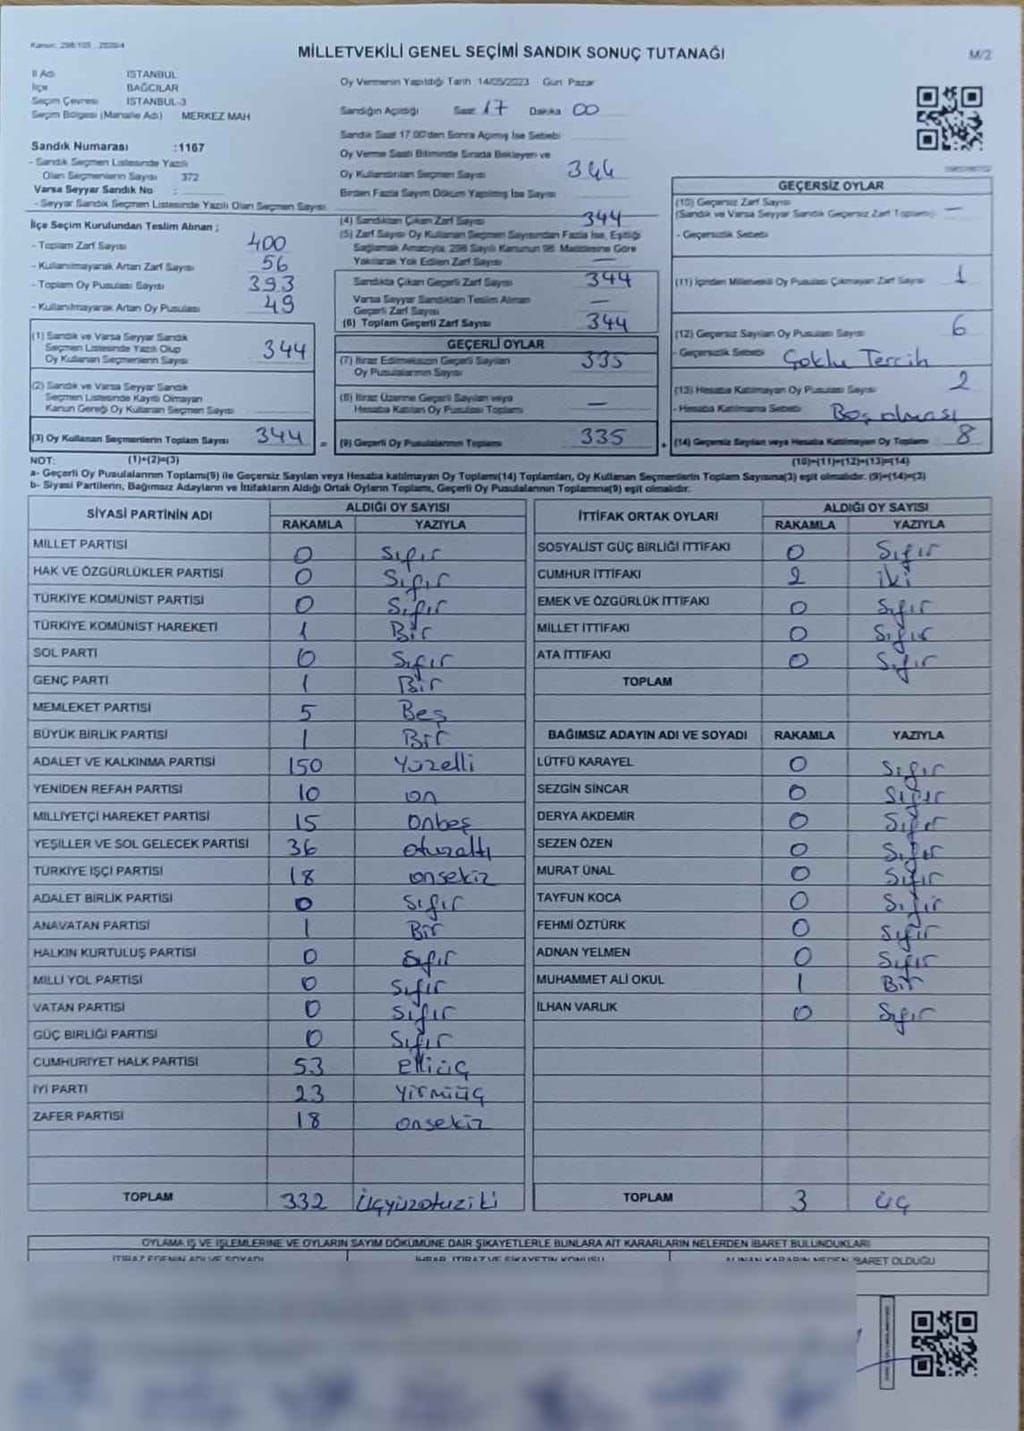 Kanun: 298/105 , 2020/4
MİLLETVEKİLİ GENEL SEÇİMİ SANDIK SONUÇ TUTANAĞI
M/2
İl Adı İSTANBUL
İlçe BAĞCILAR
Seçim Çevresi İSTANBUL-3
Seçim Bölgesi (Mahalle Adı) MERKEZ MAH
Sandık Numarası :1167
- Sandık Seçmen Listesinde Yazılı
Olan Seçmenlerin Sayısı 372
Varsa Seyyar Sandık No :
- Seyyar Sandık Seçmen Listesinde Yazılı Olan Seçmen Sayısı
İlçe Seçim Kurulundan Teslim Alınan ;
- Toplam Zarf Sayısı 400
- Kullanılmayarak Artan Zarf Sayısı 56
- Toplam Oy Pusulası Sayısı 393
- Kullanılmayarak Artan Oy Pusulası 49
(1) Sandık ve Varsa Seyyar Sandık
Seçmen Listesinde Yazılı Olup
Oy Kullanan Seçmenlerin Sayısı 344
(2) Sandık ve Varsa Seyyar Sandık
Seçmen Listesinde Kayıtlı Olmayan
Kanun Gereği Oy Kullanan Seçmen Sayısı
(3) Oy Kullanan Seçmenlerin Toplam Sayısı 344 =
Oy Vermenin Yapıldığı Tarih 14/05/2023 Gün Pazar
Sandığın Açıldığı Saat 17 Dakika 00
Sandık Saat 17.00'den Sonra Açılmış İse Sebebi
Oy Verme Saati Bitiminde Sırada Bekleyen ve
Oy Kullandırılan Seçmen Sayısı 344
Birden Fazla Sayım Döküm Yapılmış İse Sayısı
(4) Sandıktan Çıkan Zarf Sayısı 344
(5) Zarf Sayısı Oy Kullanan Seçmen Sayısından Fazla İse, Eşitliği
Sağlamak Amacıyla, 298 Sayılı Kanunun 98. Maddesine Göre
Yakılarak Yok Edilen Zarf Sayısı —
Sandıkta Çıkan Geçerli Zarf Sayısı 344
Varsa Seyyar Sandıktan Teslim Alınan
Geçerli Zarf Sayısı —
(6) Toplam Geçerli Zarf Sayısı 344
GEÇERLİ OYLAR
(7) İtiraz Edilmeksizin Geçerli Sayılan
Oy Pusulalarının Sayısı 335
(8) İtiraz Üzerine Geçerli Sayılan veya
Hesaba Katılan Oy Pusulalarının Toplamı —
(9) Geçerli Oy Pusulalarının Toplamı 335 +
GEÇERSİZ OYLAR
(10) Geçersiz Zarf Sayısı
(Sandık ve Varsa Seyyar Sandık Geçersiz Zarf Toplamı) —
- Geçersizlik Sebebi
(11) İçinden Milletvekili Oy Pusulası Çıkmayan Zarf Sayısı 1
(12) Geçersiz Sayılan Oy Pusulası Sayısı 6
- Geçersizlik Sebebi Çoklu Tercih
(13) Hesaba Katılmayan Oy Pusulası Sayısı 2
- Hesaba Katılmama Sebebi Boş olması
(14) Geçersiz Sayılan veya Hesaba Katılmayan Oy Toplamı 8
NOT: (1)+(2)=(3) (10)+(11)+(12)+(13)=(14)
a- Geçerli Oy Pusulalarının Toplamı(9) ile Geçersiz Sayılan veya Hesaba katılmayan Oy Toplamı(14) Toplamları, Oy Kullanan Seçmenlerin Toplam Sayısına(3) eşit olmalıdır. (9)+(14)=(3)
b- Siyasi Partilerin, Bağımsız Adayların ve İttifakların Aldığı Ortak Oyların Toplamı, Geçerli Oy Pusulalarının Toplamına(9) eşit olmalıdır.
SİYASİ PARTİNİN ADI ALDIĞI OY SAYISI
RAKAMLA YAZIYLA
MİLLET PARTİSİ 0 Sıfır
HAK VE ÖZGÜRLÜKLER PARTİSİ 0 Sıfır
TÜRKİYE KOMÜNİST PARTİSİ 0 Sıfır
TÜRKİYE KOMÜNİST HAREKETİ 1 Bir
SOL PARTİ 0 Sıfır
GENÇ PARTİ 1 Bir
MEMLEKET PARTİSİ 5 Beş
BÜYÜK BİRLİK PARTİSİ 1 Bir
ADALET VE KALKINMA PARTİSİ 150 Yüzelli
YENİDEN REFAH PARTİSİ 10 on
MİLLİYETÇİ HAREKET PARTİSİ 15 Onbeş
YEŞİLLER VE SOL GELECEK PARTİSİ 36 otuzaltı
TÜRKİYE İŞÇİ PARTİSİ 18 onsekiz
ADALET BİRLİK PARTİSİ 0 Sıfır
ANAVATAN PARTİSİ 1 Bir
HALKIN KURTULUŞ PARTİSİ 0 Sıfır
MİLLİ YOL PARTİSİ 0 Sıfır
VATAN PARTİSİ 0 Sıfır
GÜÇ BİRLİĞİ PARTİSİ 0 Sıfır
CUMHURİYET HALK PARTİSİ 53 Elliüç
İYİ PARTİ 23 Yirmiüç
ZAFER PARTİSİ 18 onsekiz
TOPLAM 332 Üçyüzotuziki
İTTİFAK ORTAK OYLARI ALDIĞI OY SAYISI
RAKAMLA YAZIYLA
SOSYALİST GÜÇ BİRLİĞİ İTTİFAKI 0 Sıfır
CUMHUR İTTİFAKI 2 iki
EMEK VE ÖZGÜRLÜK İTTİFAKI 0 Sıfır
MİLLET İTTİFAKI 0 Sıfır
ATA İTTİFAKI 0 Sıfır
TOPLAM
BAĞIMSIZ ADAYIN ADI VE SOYADI RAKAMLA YAZIYLA
LÜTFÜ KARAYEL 0 Sıfır
SEZGİN SİNCAR 0 Sıfır
DERYA AKDEMİR 0 Sıfır
SEZEN ÖZEN 0 Sıfır
MURAT ÜNAL 0 Sıfır
TAYFUN KOCA 0 Sıfır
FEHMİ ÖZTÜRK 0 Sıfır
ADNAN YELMEN 0 Sıfır
MUHAMMET ALİ OKUL 1 Bir
İLHAN VARLIK 0 Sıfır
TOPLAM 3 üç
OYLAMA İŞ VE İŞLEMLERİNE VE OYLARIN SAYIM DÖKÜMÜNE DAİR ŞİKAYETLERLE BUNLARA AİT KARARLARIN NELERDEN İBARET BULUNDUKLARI
İTİRAZ EDENİN ADI VE SOYADI İHBAR, İTİRAZ VE ŞİKAYETİN KONUSU ALINAN KARARIN NEDEN İBARET OLDUĞU